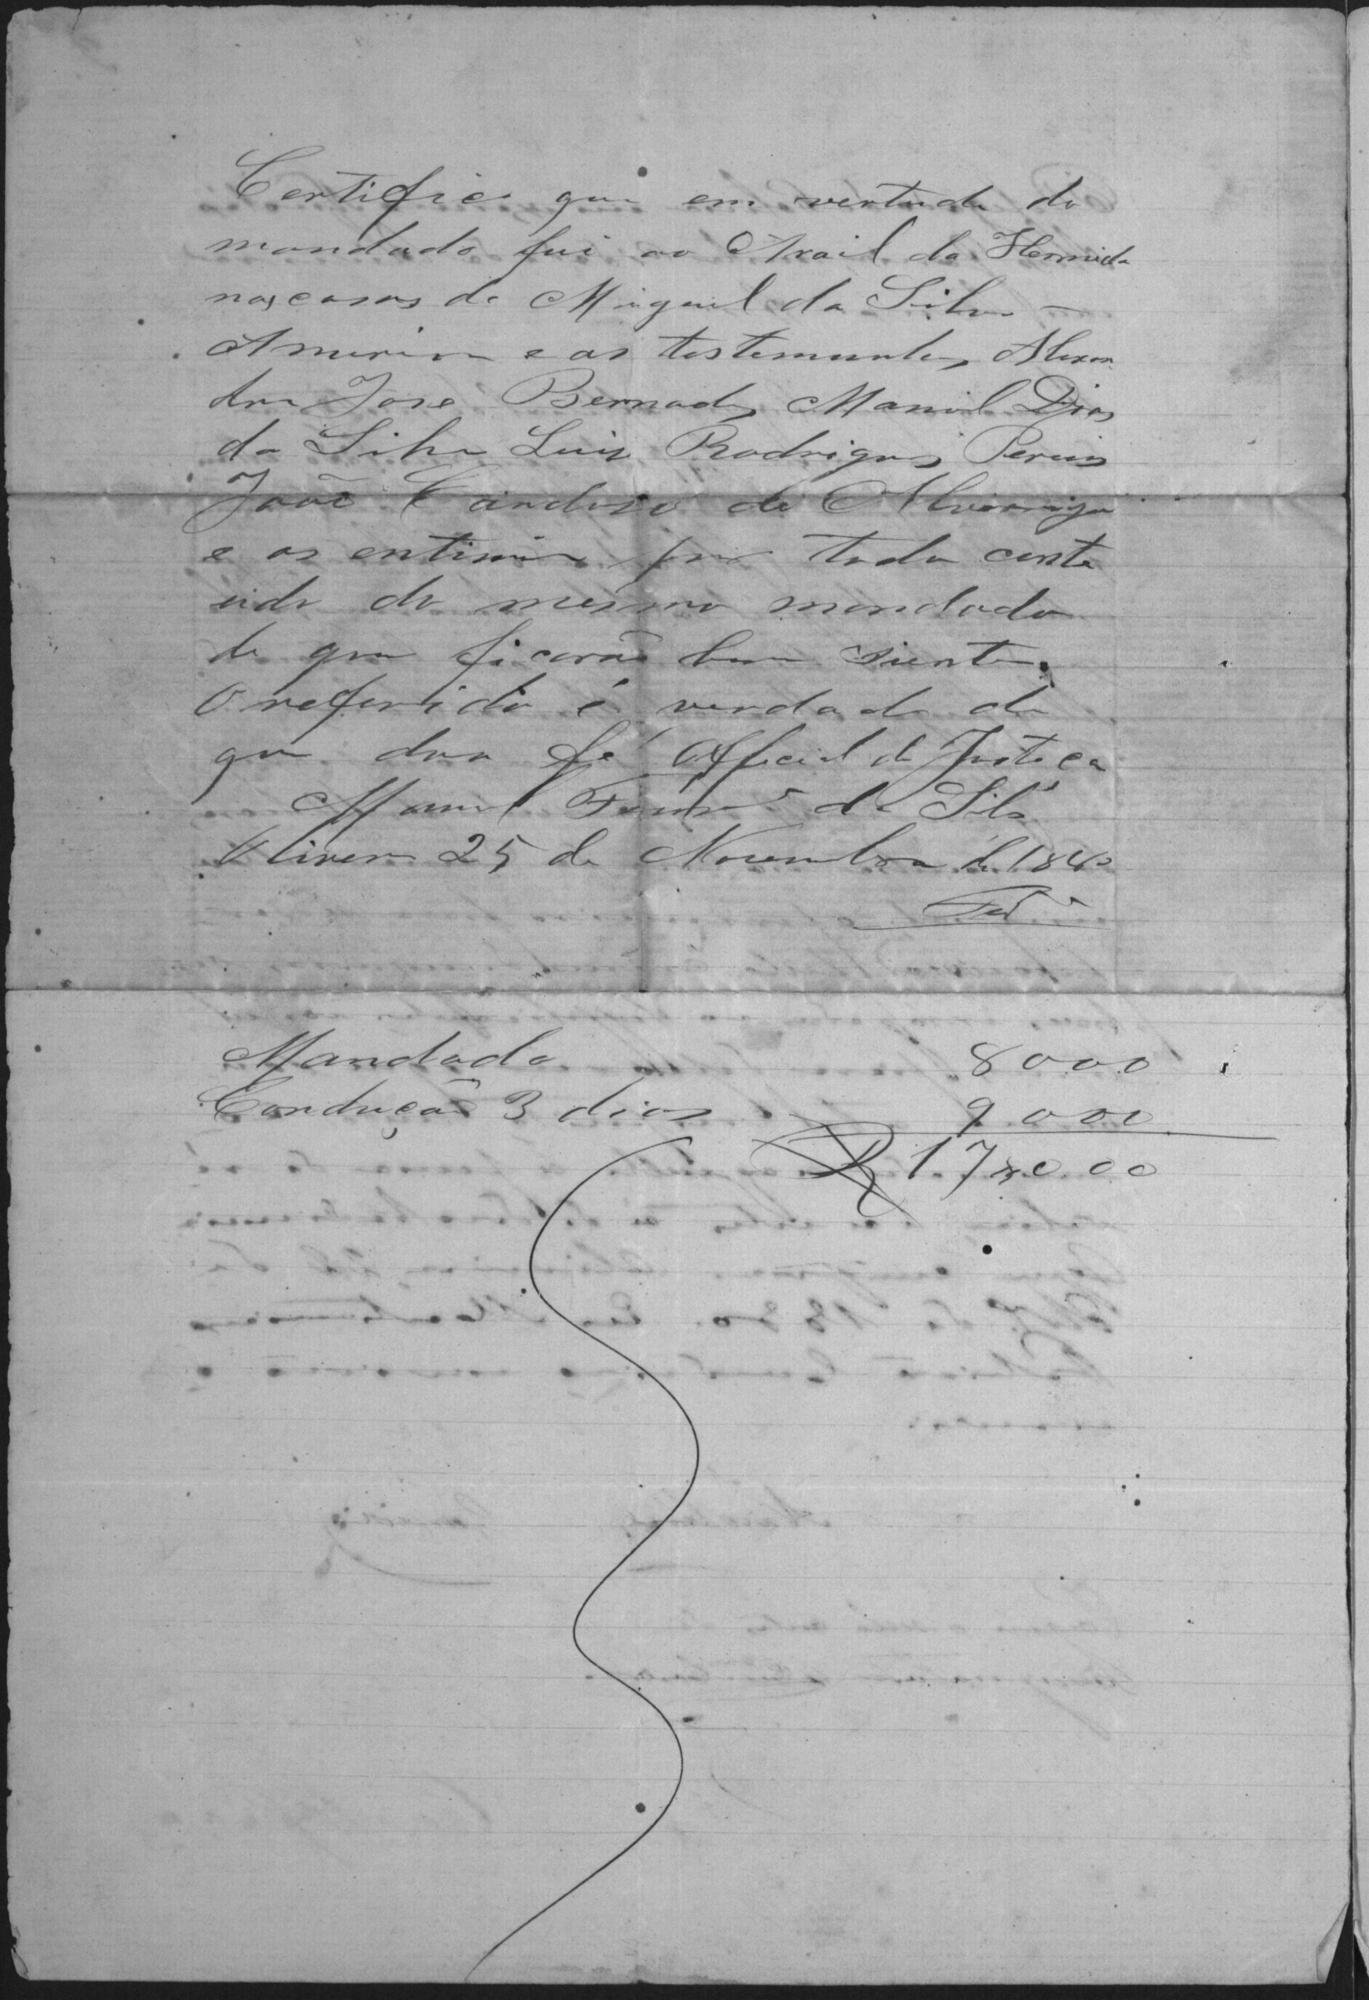 Certifico que em vertude do
mandado fui ao Araial da Hermida
nas casas de Miguel da Silva
Amurim e as testemunhas Alexan
dre José Bernades Manoel Dias
da Silva Luis Rodrigues Pereira
João Cardoso de Alvarenga
e os entimei por todo conte
udo do mesmo mandado
de que ficarão bem siente.
O referido é verdade de
que dou fé Official de Justica
Manoel da Silva
Oliveira 25 de Novembro de
Mandado 8000
Condução 3 dias 9000
R 17$000